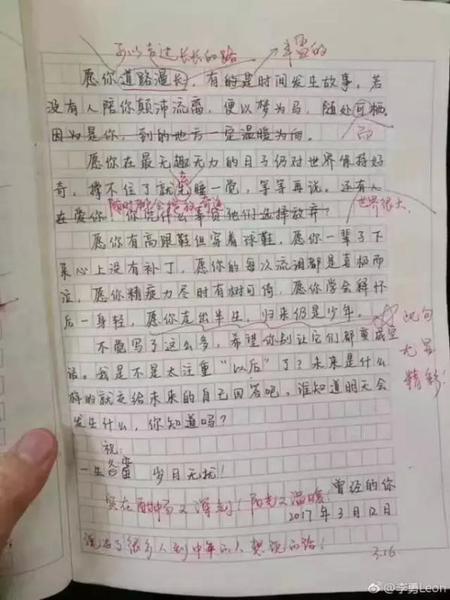 可以走过长长的路
丰盈的
愿你道路漫长，有的是时间发生故事，若
没有人陪你颠沛流离，便以梦为马，随处可栖。
因为是你，到的地方一定温暖为而。
愿你在最无趣无力的日子仍对世界保持好
奇，撑不住了就去睡一觉，等等再说。还有人
在爱你，你凭什么辜负他们选择放弃？
随时都会
世界很大
愿你有高跟鞋但穿着球鞋，愿你一辈子下
来心上没有补丁，愿你的每次流泪都是喜极而
泣，愿你精疲力尽时有树可倚，愿你学会释怀
后一身轻，愿你走出半生，归来仍是少年。
此句
尤显
精彩！
不觉写了这么多，希望你别让它们都变成空
话。我是不是太注重“以后”了？未来是什么
样的就交给未来的自己回答吧，谁知道明天会
发生什么，你知道吗？
祝：
一生 岁月无忧！
实在酣畅又深刻！阳光又温暖
曾经的你
2017年3月12日
说出了很多人到中年的人想说的话！
3.16
@李勇Leon